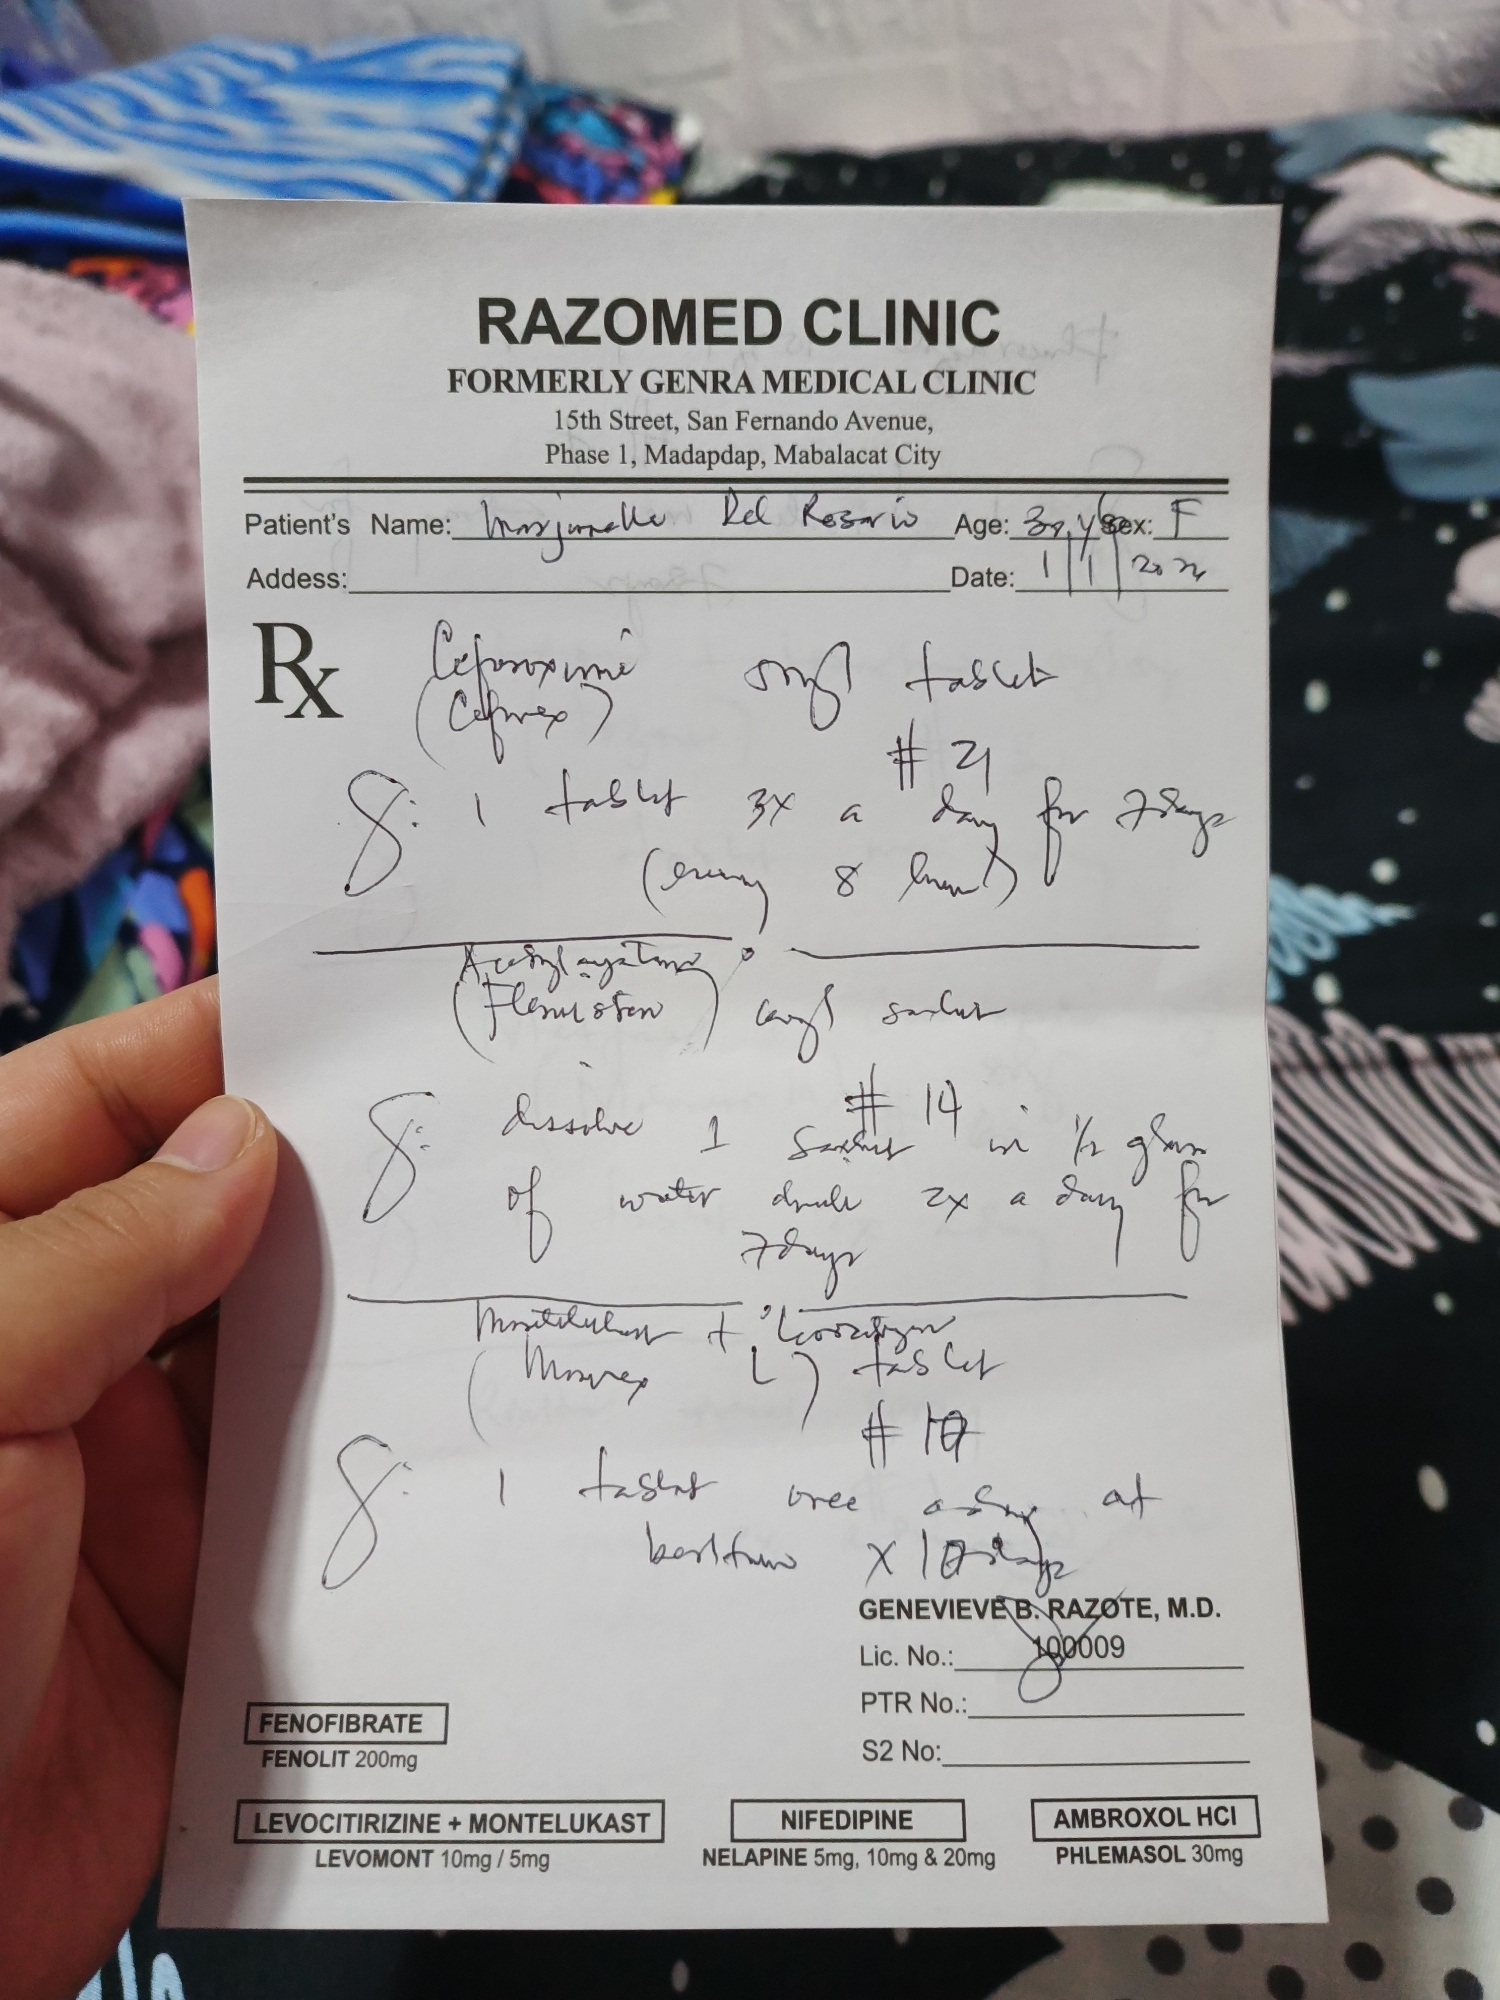 RAZOMED CLINIC
FORMERLY GENRA MEDICAL CLINIC
15th Street, San Fernando Avenue,
Phase 1, Madapdap, Mabalacat City
Patient's Name: Del Rosario Age: Sex: F
Addess: Date: 1/1/2024
Rx tablet
# 21
S: 1 tablet 3x a day for 7days
(every 8 hours)
sachet
# 14
S: dissolve 1 sachet in 1/2 glass
of water drink 2x a day for
7days
Montelukast +
L) tablet
# 10
S: 1 tablet once a day at
bedtime x 10 days
GENEVIEVE B. RAZOTE, M.D.
Lic. No.: 100009
PTR No.:
S2 No:
FENOFIBRATE
FENOLIT 200mg
LEVOCITIRIZINE + MONTELUKAST NIFEDIPINE AMBROXOL HCl
LEVOMONT 10mg / 5mg NELAPINE 5mg, 10mg & 20mg PHLEMASOL 30mg